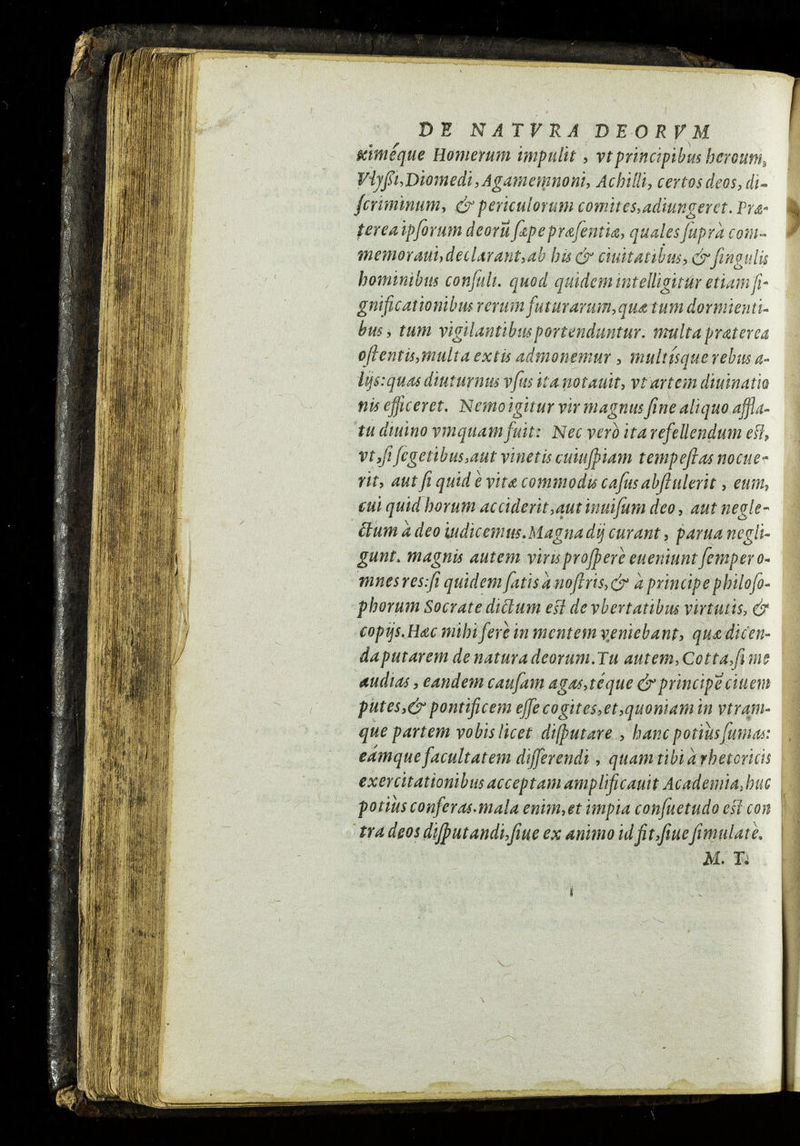 DE NATVRA DEORVM
ximéque Homerum impulit, vt principibus heroum,
Vlyßi, Diomedi, Agamemnoni, Achilli, certos deos, di-
ſcriminum, & periculorum comites, adiungeret. Præ-
terea ipſorum deorū ſæpe præſentiæ, quales ſuprà com-
memoraui, declarant, ab his & ciuitatibus, & ſingulis
hominibus conſuli. quod quidem intelligitur etiam ſi-
gnificationibus rerum futurarum, quæ tum dormienti-
bus, tum vigilantibus portenduntur. multa præterea
oſtentis, multa extis admonemur, multisque rebus a-
lijs: quas diuturnus vſus ita notauit, vt artem diuinatio
nis efficeret. Nemo igitur vir magnus ſine aliquo affla-
tu diuino vmquam fuit: Nec verò ita refellendum eſt,
vt, ſi ſegetibus, aut vinetis cuiuſpiam tempeſtas nocue-
rit, aut ſi quid è vitæ commodis caſus abſtulerit, eum,
cui quid horum acciderit, aut inuiſum deo, aut negle-
ctum à deo iudicemus. Magna dij curant, parua negli-
gunt. magnis autem viris proſpere eueniunt ſemper o-
mnes res: ſi quidem ſatis à noſtris, & à principe philoſo-
phorum Socrate dictum eſt de vbertatibus virtutis, &
copijs. Hæc mihi ferè in mentem veniebant, quæ dicen-
da putarem de natura deorum. Tu autem, Cotta, ſi me
audias, eandem cauſam agas, téque & principē ciuem
putes, & pontificem eſſe cogites, et, quoniam in vtram-
que partem vobis licet diſputare, hanc potiùs ſumas:
eámque facultatem diſſerendi, quam tibi à rhetoricis
exercitationibus acceptam amplificauit Academia, huc
potiùs conferas. mala enim, et impia conſuetudo eſt con
tra deos diſputandi, ſiue ex animo id fit, ſiue ſimulatè.
M. T.